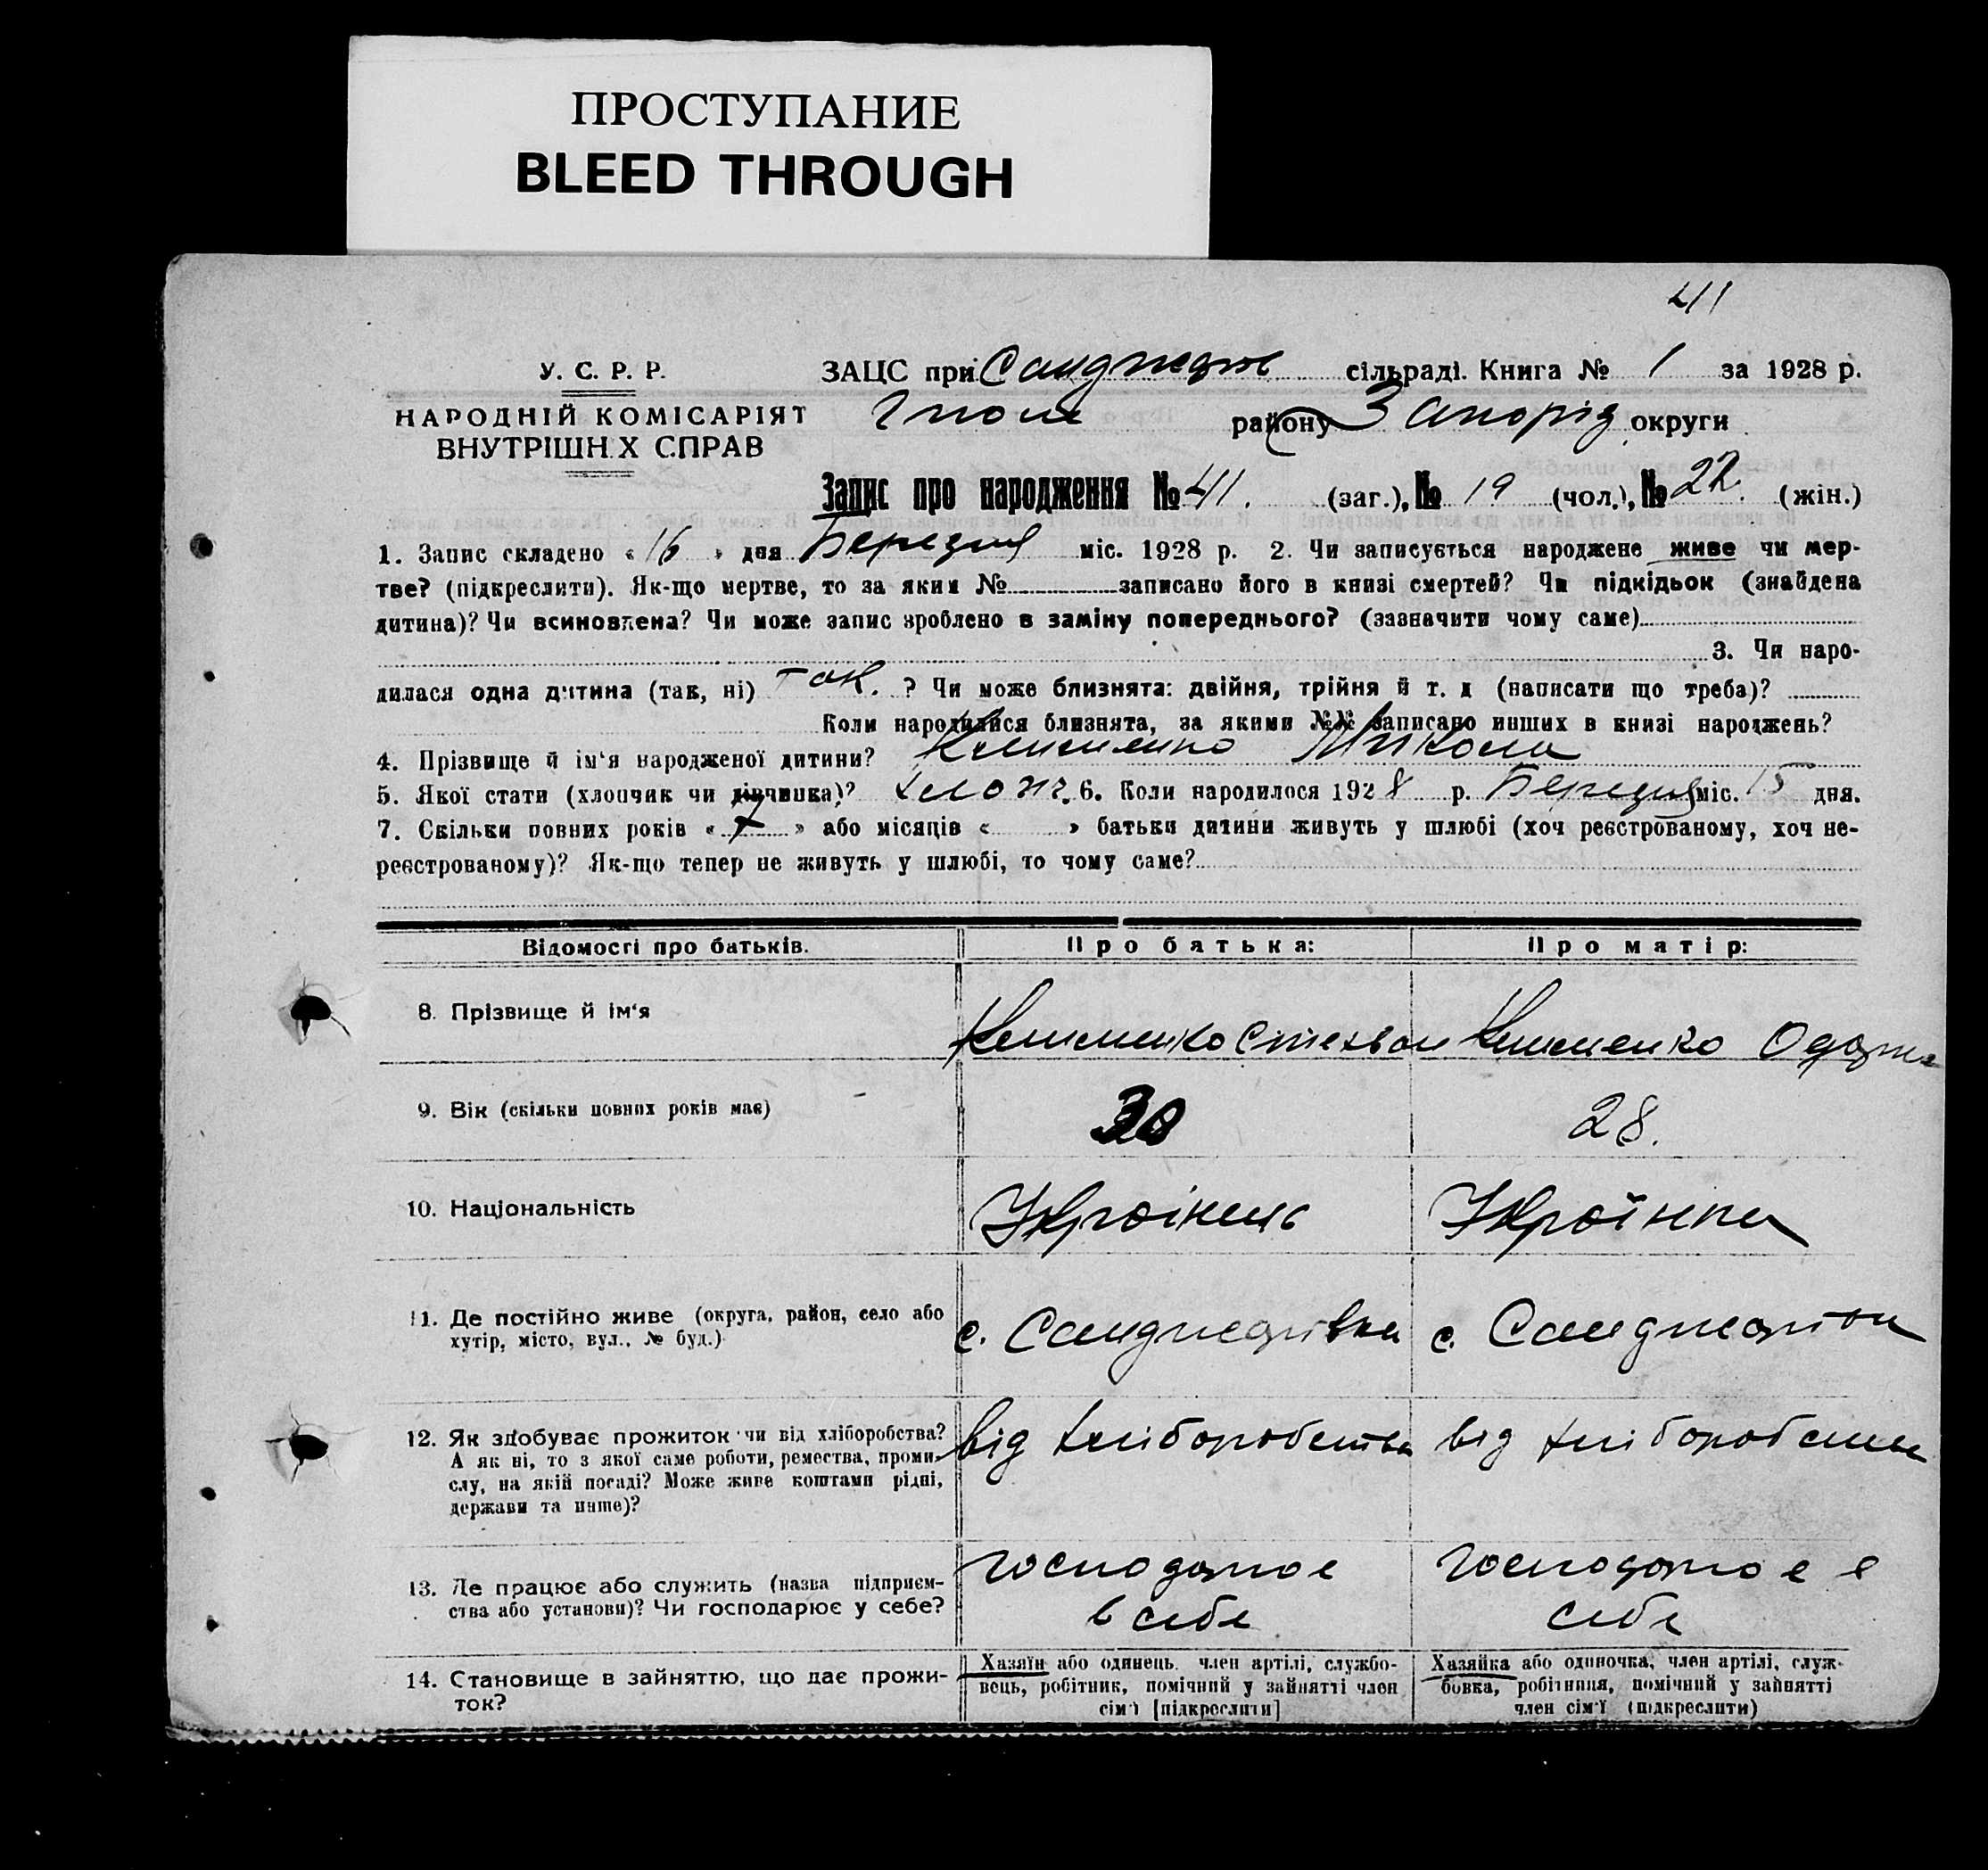 ПРОСТУПАНИЕ
BLEED THROUGH
41
У. С. Р. Р.
НАРОДНІЙ КОМІСАРІЯТ
ВНУТРІШН.Х СПРАВ
ЗАЦС при сільраді. Книга № 1 за 1928 р.
району Запоріз округи
Запис про народження № 41. (заг.), № 19 (чол.), № 22. (жін.)
1. Запис складено « 16 » дня Березня міс. 1928 р. 2. Чи записується народжене живе чи мер-
тве? (підкреслити). Як-що мертве, то за яким № записано його в книзі смертей? Чи підкідьок (знайдена
дитина)? Чи всиновлена? Чи може запис зроблено в заміну попереднього? (зазначити чому саме)
3. Чи наро-
дилася одна дитина (так, ні) так. ? Чи може близнята: двійня, трійня й т. д (написати що треба)?
Коли народилися близнята, за якими №№ записано инших в книзі народжень?
4. Прізвище й ім'я народженої дитини? Клименко Микола
5. Якої стати (хлопчик чи дівчинка)? хлопч. 6. Коли народилося 1928 р. Березня міс. 15 дня.
7. Скільки повних років « 7 » або місяців « » батьки дитини живуть у шлюбі (хоч реєстрованому, хоч не-
реєстрованому)? Як-що тепер не живуть у шлюбі, то чому саме?
Відомості про батьків. Про батька: Про матір:
8. Прізвище й ім'я
Клименко Степан Клименко Одарка
9. Вік (скільки повних років має) 30 28.
10. Національність Українець Українка
11. Де постійно живе (округа, район, село або
хутір, місто, вул., № буд.)
с. с.
12. Як здобуває прожиток чи від хліборобства?
А як ні, то з якої саме роботи, ремества, проми-
слу, на якій посаді? Може живе коштами рідні,
держави та инше)?
від хліборобства від хліборобства
13. Де працює або служить (назва підприєм-
ства або установи)? Чи господарює у себе?
господарює
в себе
господарює в
себе
14. Становище в зайняттю, що дає прожи-
ток?
Хазяїн або одинець, член артілі, службо-
вець, робітник, помічний у зайнятті член
сім'ї [підкреслити]
Хазяйка або одиночка, член артілі, служ-
бовка, робітниця, помічний у зайнятті
член сім'ї (підкреслити)